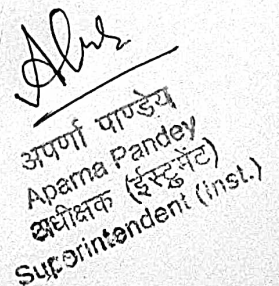 अपर्णा पाण्डेय
Aparna Pandey
अधीक्षक (ईंस्ट्रुमेंट)
Superintendent (Inst.)